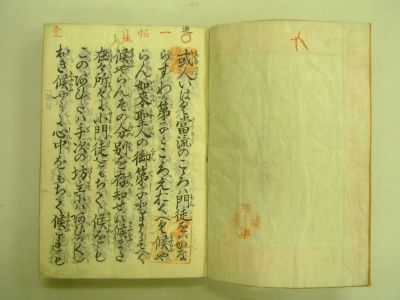 一帖目
或人いはく當流のこゝろハ門徒をハかな
らすわか弟子とこゝろえをくへく候や
らん如來聖人の御弟子とまうすへく
候やらんその分別を存知せす候また
在々所々に小門徒をもちて候をも
このあひたハ手次の坊主にハあひかくし
をき候やうに心中をもちて候これも